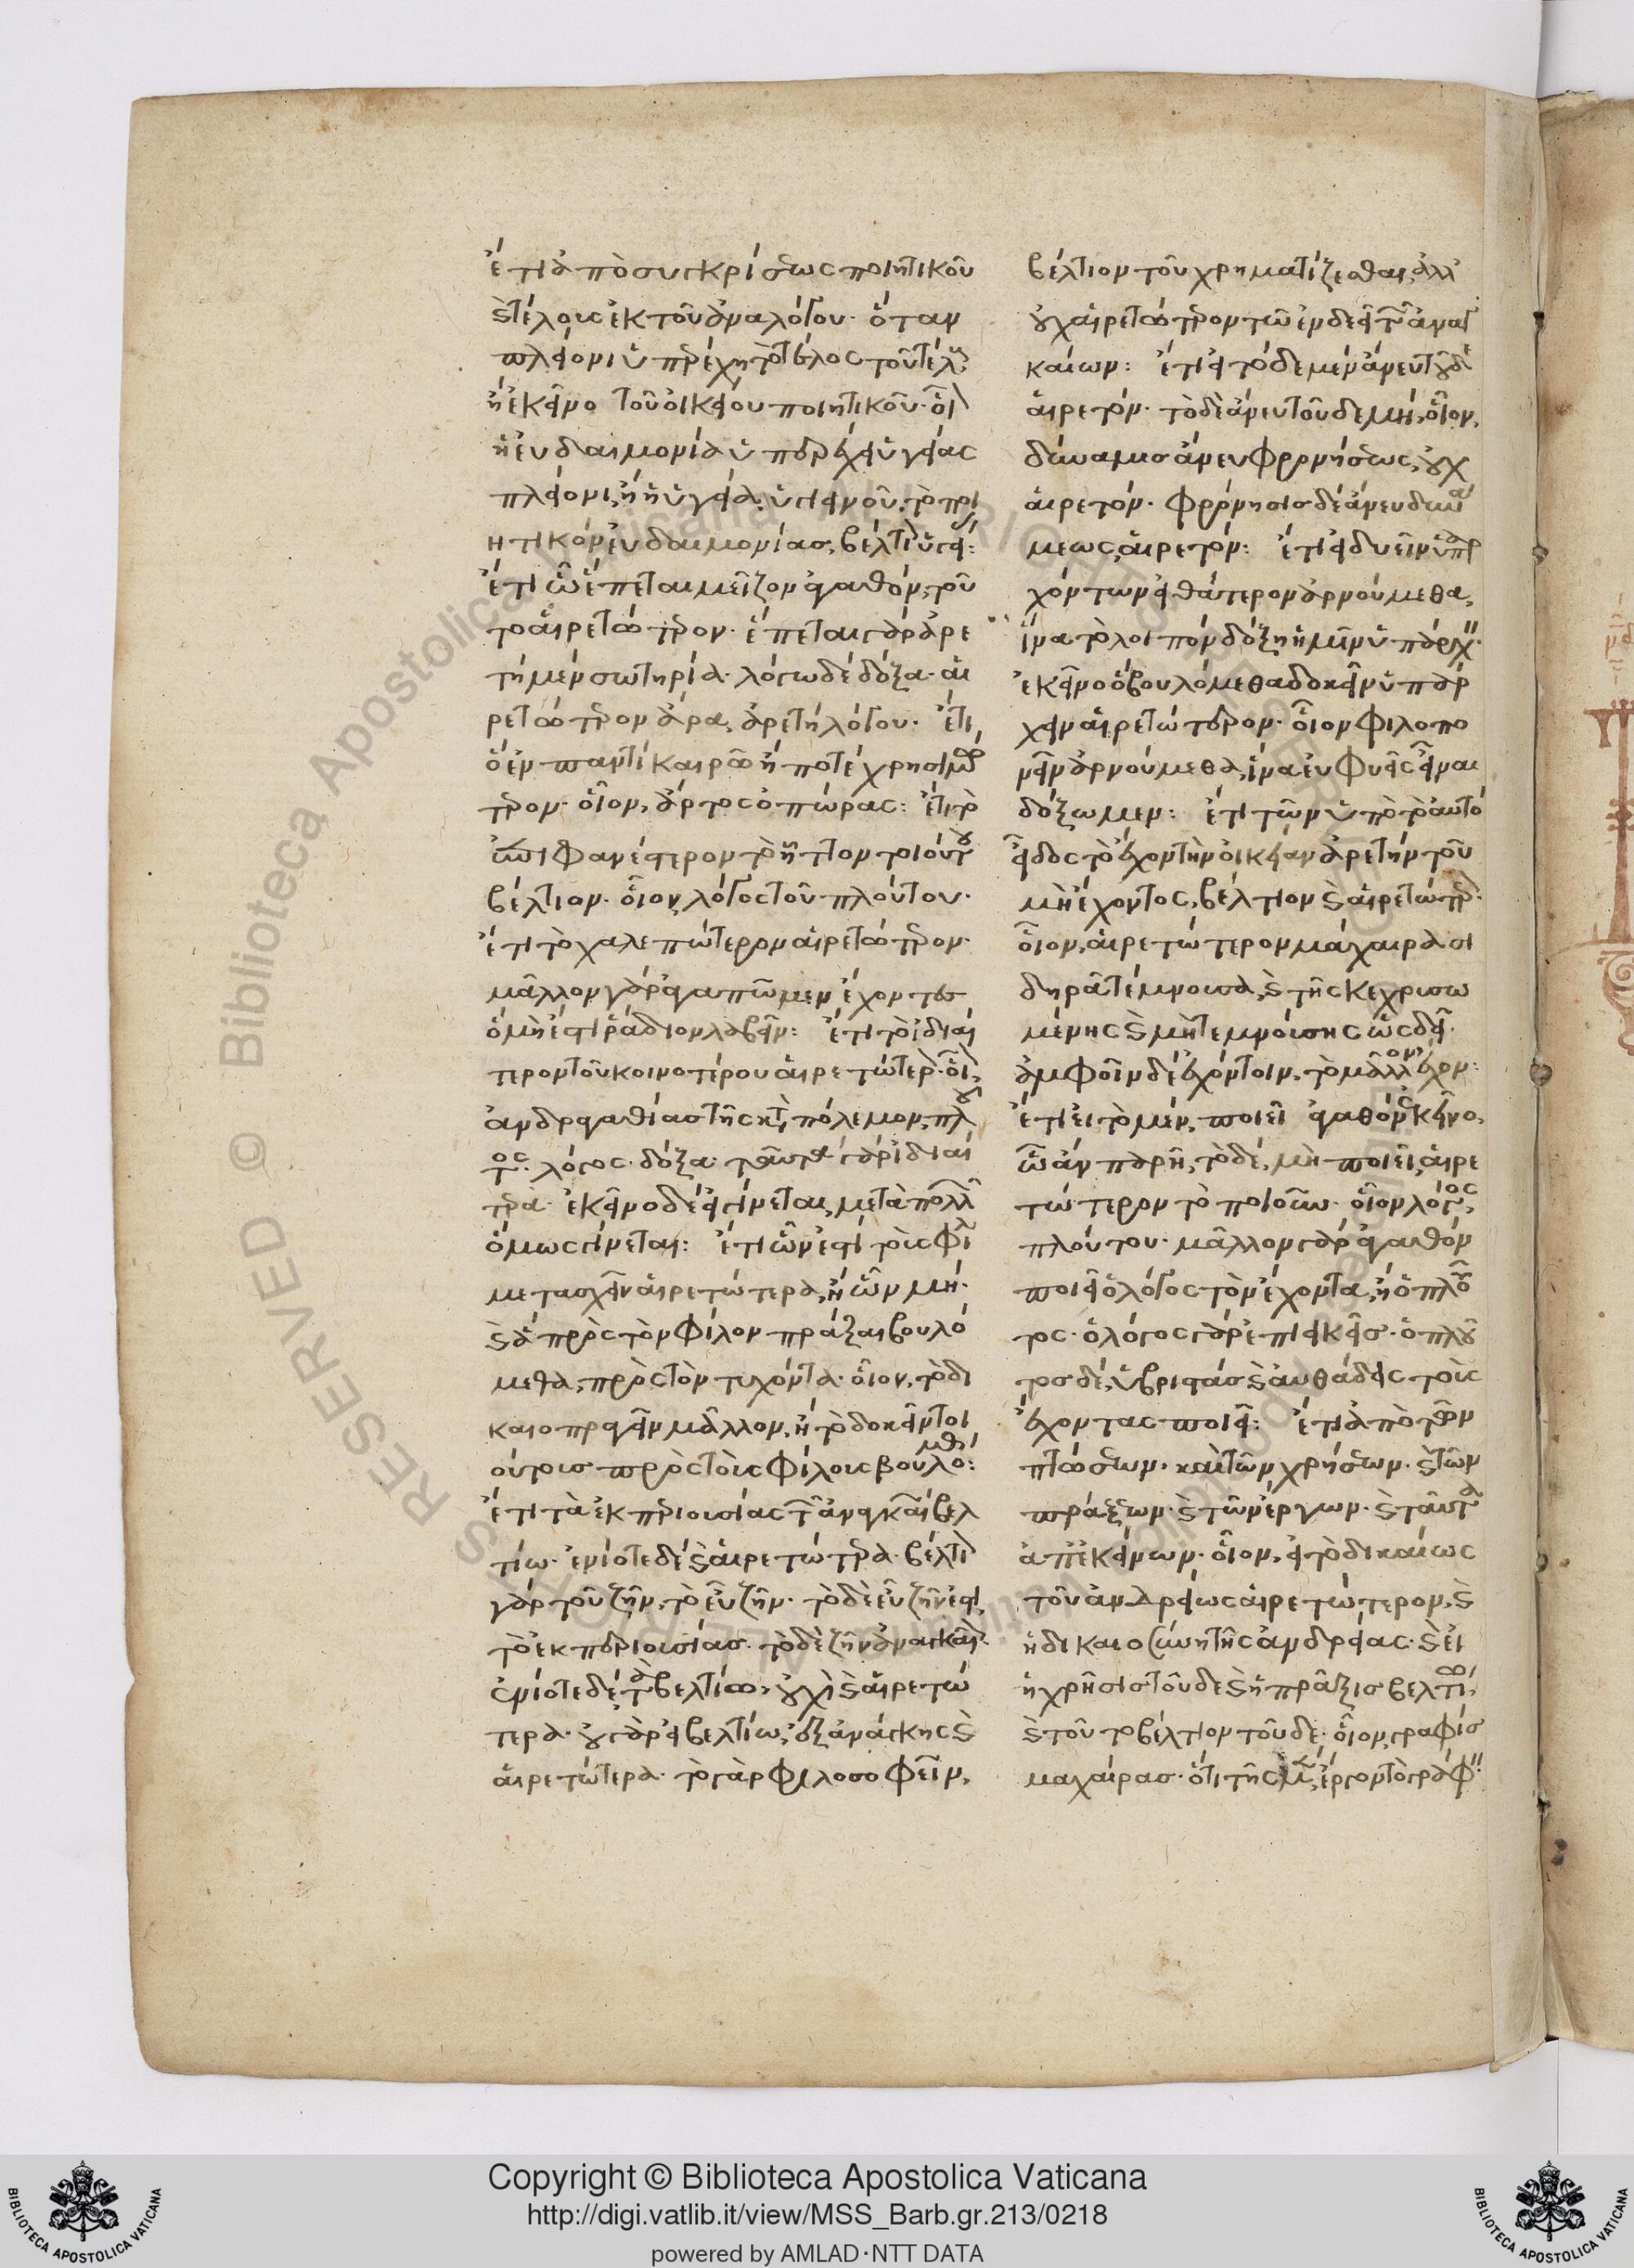 ἔτι ἀπὸ συγκρίσεως ποιητικοῦ
καὶ τέλους ἐκ τοῦ ἀναλόγου· ὅταν
πλείονι ὑπερέχῃ τὸ τέλος τοῦ τέλους,
ἢ ἐκεῖνο τοῦ οἰκείου ποιητικοῦ· οἷον
ἡ εὐδαιμονία ὑπερέχει ὑγείας
πλείονι, ἢ ἡ ὑγεία ὑγιεινοῦ. τὸ ποι
ητικὸν εὐδαιμονίας, βέλτιον ὑγιεί:
ἔτι ᾧ ἕπεται μεῖζον ἀγαθόν, τοῦ
το αἱρετώτερον· ἕπεται γὰρ ἀρε
τῇ μὲν σωτηρία· λόγῳ δὲ δόξα· αἱ
ρετώτερον ἄρα, ἀρετὴ λόγου· ἔτι
ὃ ἐν παντὶ καιρῷ ἤ ποτε χρησιμώ
τερον· οἷον, ἄρτος ὀπώρας: ἔτι τὸ
ἐπιφανέστερον τὸ ἧττον τοιούτου
βέλτιον· οἷον λόγος τοῦ πλούτου·
ἔτι τὸ χαλεπώτερον αἱρετώτερον·
μᾶλλον γὰρ ἀγαπῶμεν ἔχοντες
ὃ μὴ ἔστι ῥάδιον λαβεῖν: ἔτι τὸ ἰδιαί
τερον τοῦ κοινοτέρου αἱρετώτερον· οἷον,
ἀνδραγαθίας τῆς κατὰ πόλεμον, πλοῦ
τος· λόγος· δόξα· ταῦτα γὰρ ἰδιαί
τερα· ἐκεῖνο δὲ εἰ γίνεται, μετὰ πολλῶν
ὅμως γίνεται: ἔτι ὧν ἐστὶ τοῖς φίλοις
μετασχεῖν αἱρετώτερα, ἢ ὧν μή·
καὶ ἃ πρὸς τὸν φίλον πρᾶξαι βουλό
μεθα, πρὸς τὸν τυχόντα· οἷον, τὸ δι
καιοπραγεῖν μᾶλλον, ἢ τὸ δοκεῖν τοι
οῦτοις πρὸς τοὺς φίλους βουλόμεθα:
ἔτι τὰ ἐκ περιουσίας τῶν ἀναγκαίων βελ
τίω· ἐνίοτε δὲ καὶ αἱρετώτερα· βέλτιον
γὰρ τοῦ ζῆν, τὸ εὖ ζῆν· τὸ δὲ εὖ ζῆν ἐστὶ,
τὸ ἐκ περιουσίας· τὸ δὲ ζῆν ἀναγκαῖον·
ἐνίοτε δὲ τὰ βελτίω, οὐχὶ καὶ αἱρετώ
τερα· οὐ γὰρ εἰ βελτίω, ἐξ ἀνάγκης καὶ
αἱρετώτερα· τὸ γὰρ φιλοσοφεῖν,
βέλτιον τοῦ χρηματίζεσθαι, ἀλλ'
οὐχ αἱρετώτερον τῷ ἐνδεεῖ τῶν ἀναγ
καίων: ἔτι εἰ τόδε μὲν ἄνευ τοῦδε
αἱρετόν· τὸ δὲ ἄνευ τοῦδε μή, οἷον,
δύναμις ἄνευ φρονήσεως, οὐχ
αἱρετόν· φρόνησις δὲ ἄνευ δυνά
μεως, αἱρετόν: ἔτι εἰ δυεῖν ὑπαρ
χόντων εἰ θάτερον ἀρνούμεθα,
ἵνα τὸ λοιπὸν δόξῃ ἡμῖν ὑπάρχειν·
ἐκεῖνο ὃ βουλόμεθα δοκεῖν ὑπάρ
χειν αἱρετώτερον· οἷον φιλοπο
νεῖν ἀρνούμεθα, ἵνα εὐφυεῖς εἶναι
δόξωμεν: ἔτι τῶν ὑπὸ τὸ αὐτὸ
εἶδος τὸ ἔχον τὴν οἰκείαν ἀρετὴν τοῦ
μὴ ἔχοντος, βέλτιον καὶ αἱρετώτερον·
οἷον, αἱρετώτερον μάχαιρα σι
δηρᾶ τέμνουσα, καὶ τῆς κεχρυσω
μένης καὶ μὴ τεμνούσης ὡς δεῖ·
ἀμφοῖν δὲ ἐχόντοιν, τὸ μᾶλλον ἔχον:
ἔτι εἰ τὸ μὲν, ποιεῖ ἀγαθὸν ἐκεῖνο,
ᾧ ἂν παρῇ, τὸ δὲ, μὴ ποιεῖ, αἱρε
τώτερον τὸ ποιοῦν· οἷον λόγος,
πλούτου· μᾶλλον γὰρ ἀγαθὸν
ποιεῖ ὁ λόγος τὸν ἔχοντα, ἢ ὁ πλοῦ
τος· ὁ λόγος γὰρ ἐπιεικεῖς· ὁ πλοῦ
τος δὲ, ὑβριστὰς καὶ αὐθάδεις τοὺς
ἔχοντας ποιεῖ: ἔτι ἀπὸ τῶν
πτώσεων· καὶ τῶν χρήσεων· καὶ τῶν
πράξεων· καὶ τῶν ἔργων· καὶ ταῦτα
ἀπ' ἐκείνων· οἷον, εἰ τὸ δικαίως
τοῦ ἀνδρείως αἱρετώτερον, καὶ
ἡ δικαιοσύνη τῆς ἀνδρείας· καὶ εἰ
ἡ χρῆσις τοῦδε καὶ ἡ πρᾶξις βελτίων,
καὶ τοῦτο βέλτιον τοῦδε· οἷον, γραφὶς
μαχαίρας· ὅτι τῆς μὲν, ἔργον τὸ γράφειν